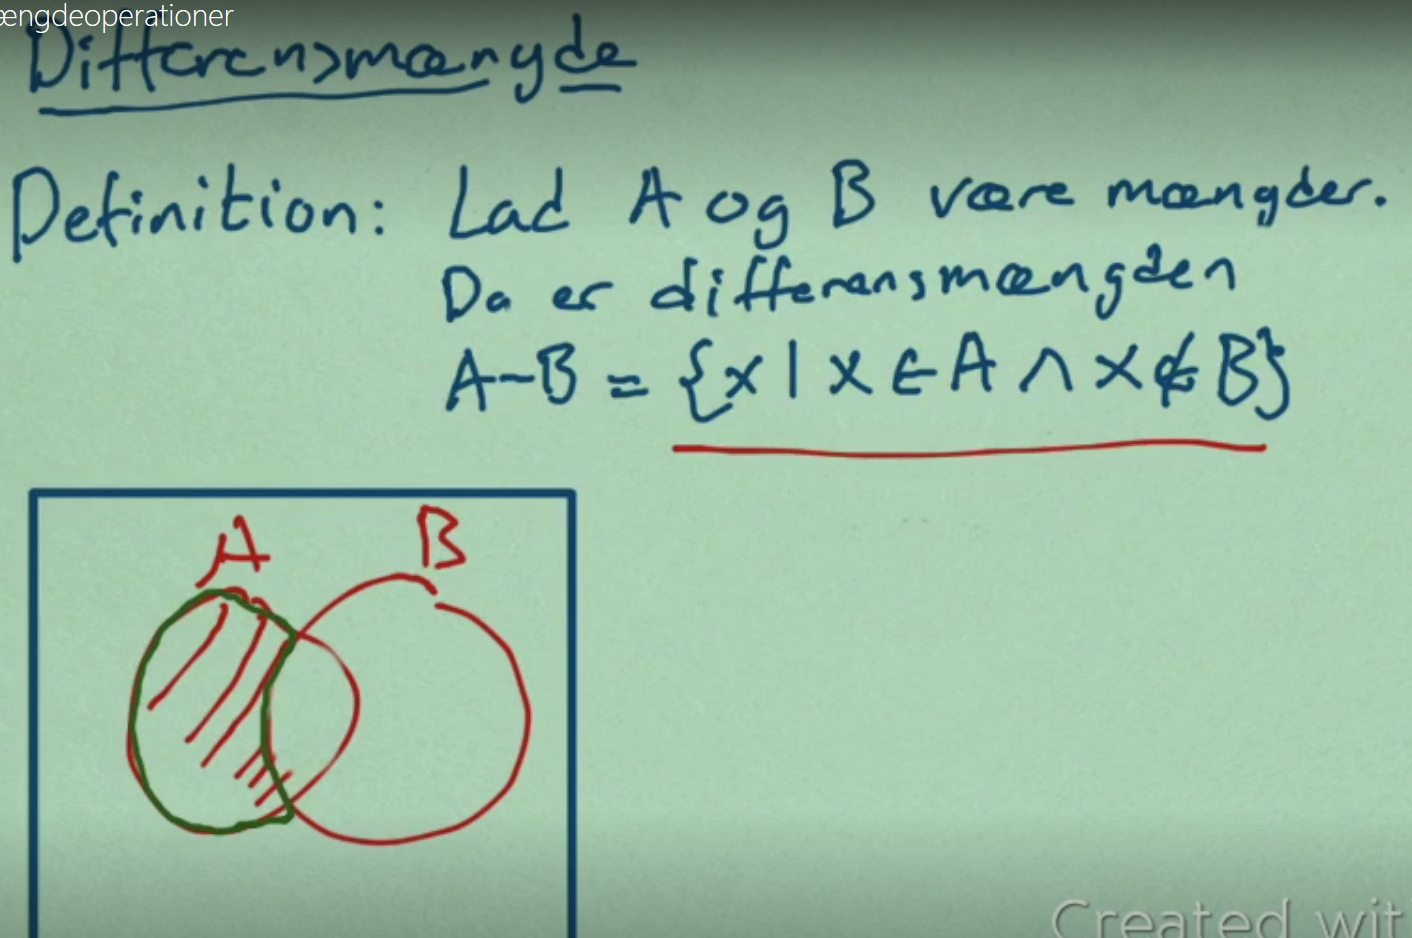 ængdeoperationer
Differensmængde
Definition: Lad A og B være mængder.
Da er differensmængden
A-B = {x | x ∈ A ∧ x ∉ B}
A
B
Created wit